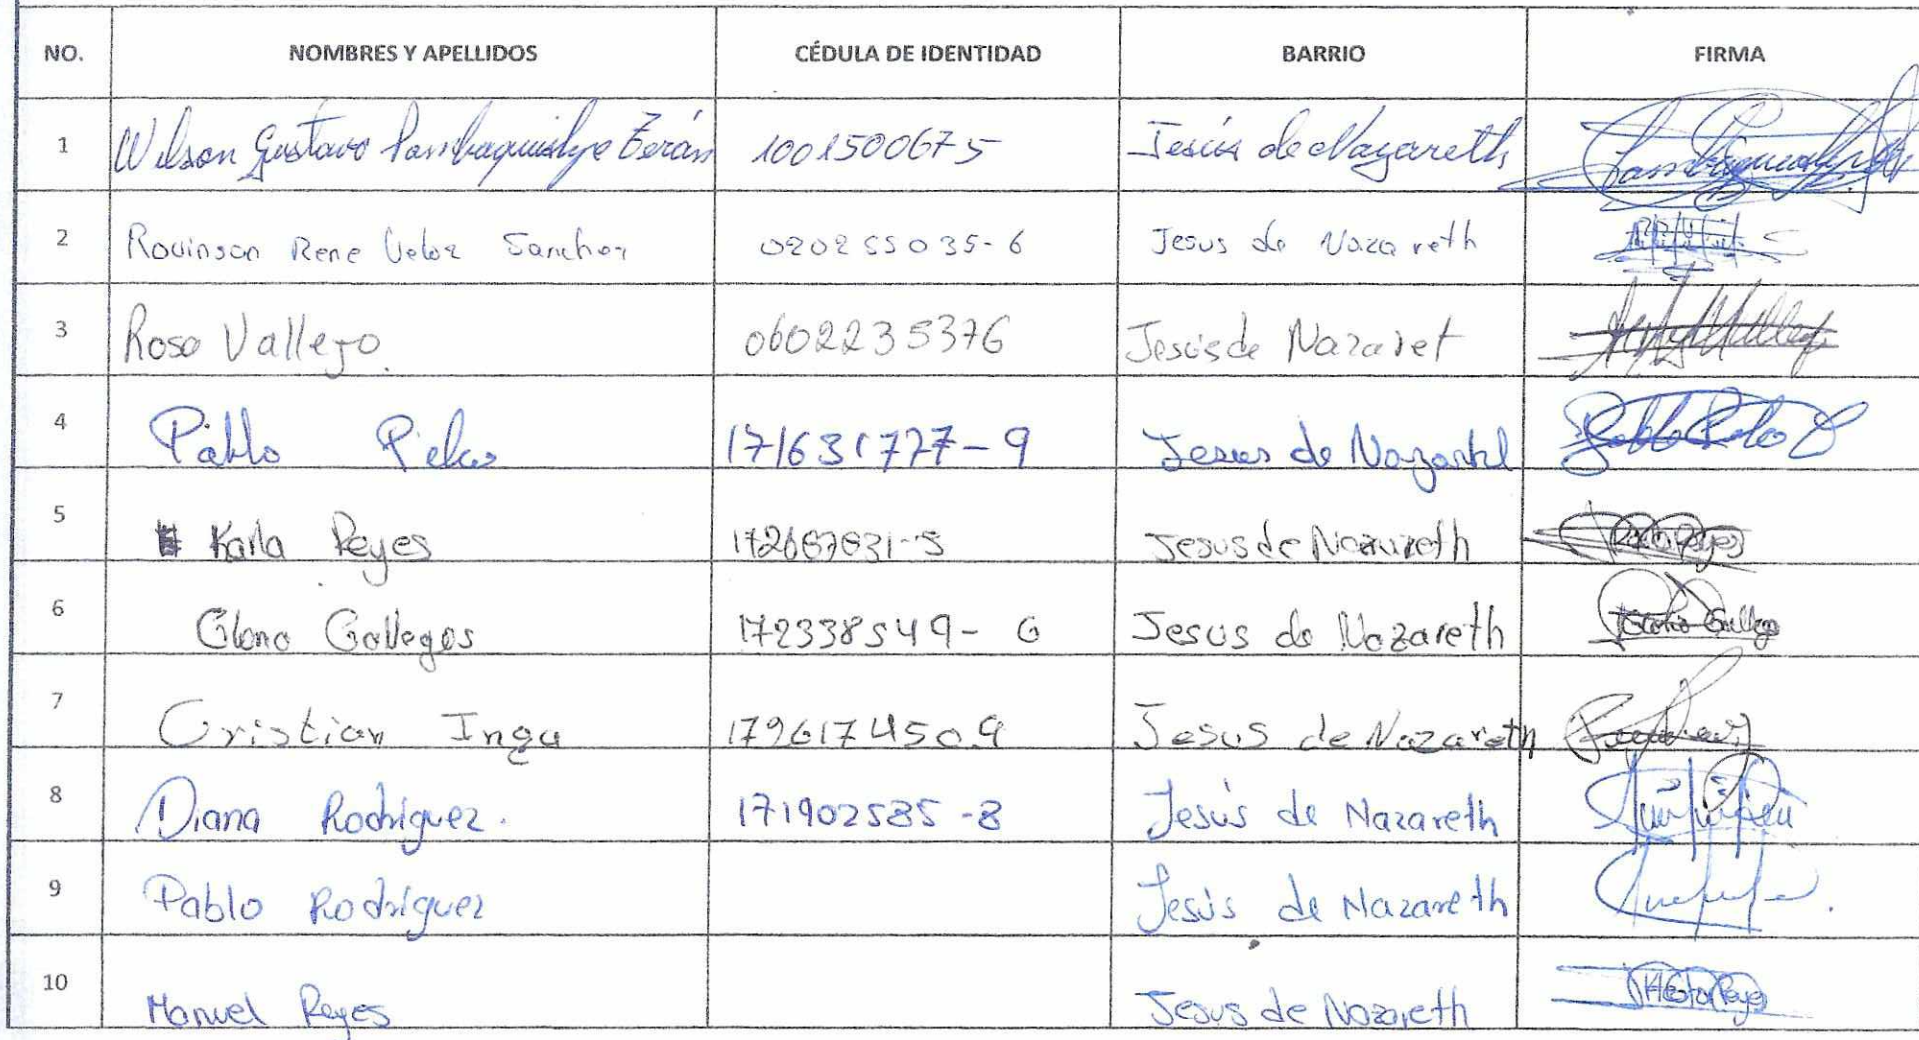 NO. NOMBRES Y APELLIDOS CÉDULA DE IDENTIDAD BARRIO FIRMA
1 Wilson Gustavo Terán 1001500675 Jesús de Nazareth
2 Rovinson Rene Veloz Sanchez 020255035-6 Jesus de Nazareth
3 Rosa Vallejo. 0602235376 Jesús de Nazaret
4 Pablo 171631777-9 Jesus de
5 Karla Reyes Jesus de Nazareth
6 Gallegos 172338549-0 Jesus de Nazareth
7 Cristian Inga Jesus de Nazareth
8 Diana Rodríguez. 171902585-8 Jesús de Nazareth
9 Pablo Rodríguez Jesús de Nazareth
10 Manuel Reyes Jesus de Nazareth